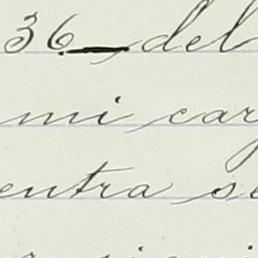 36 del
mi car
entra se